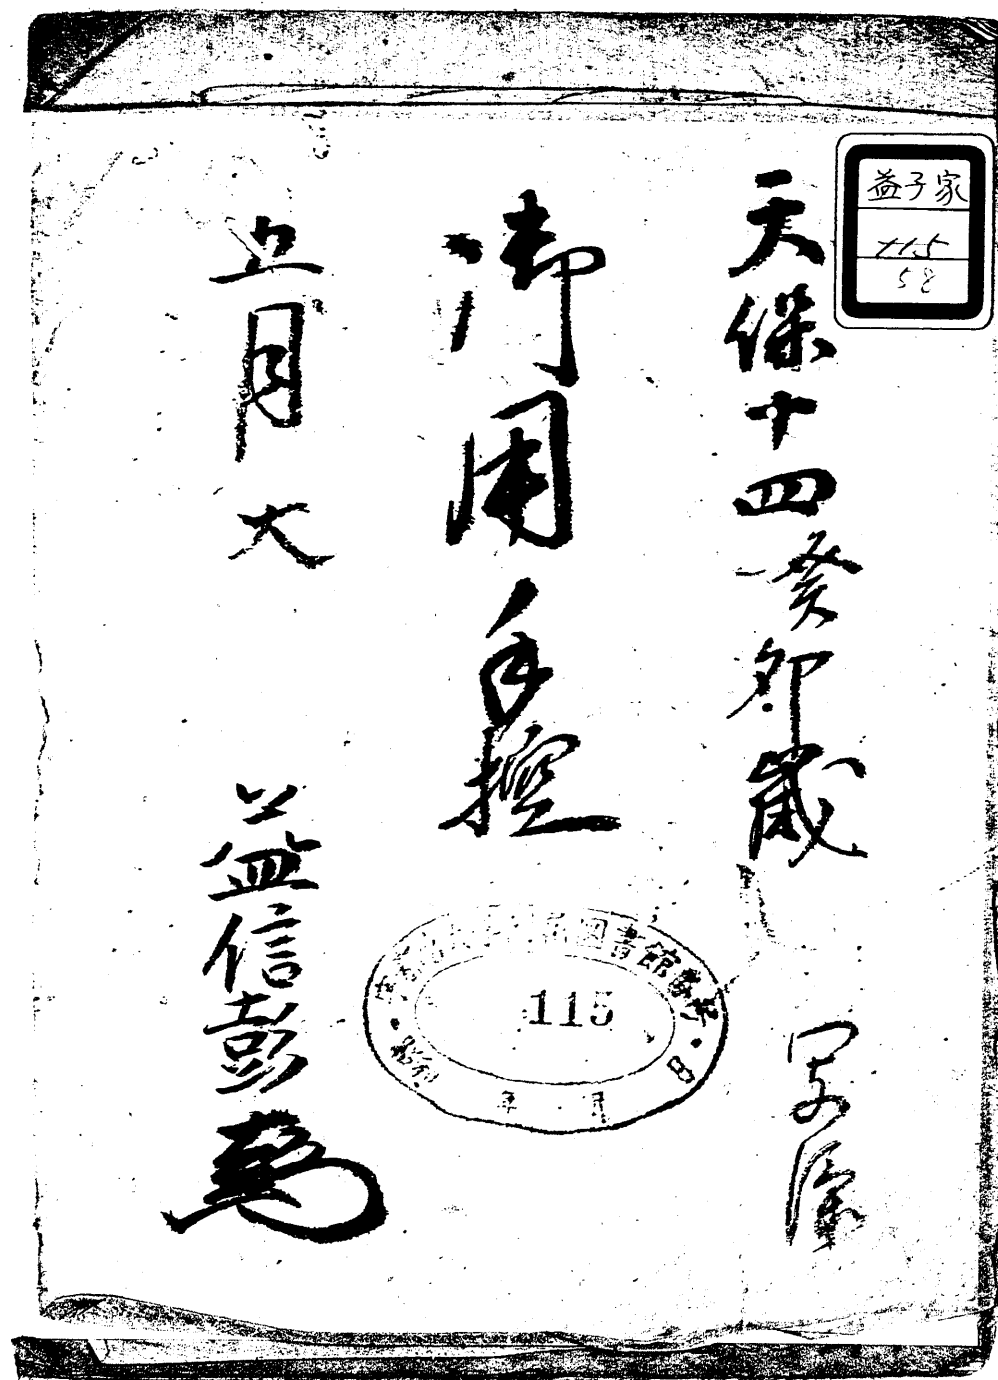 益子家
115
58
天保十四癸卯歳
御用手控
正月 大
益信彭
圖書館
115
年 月 日